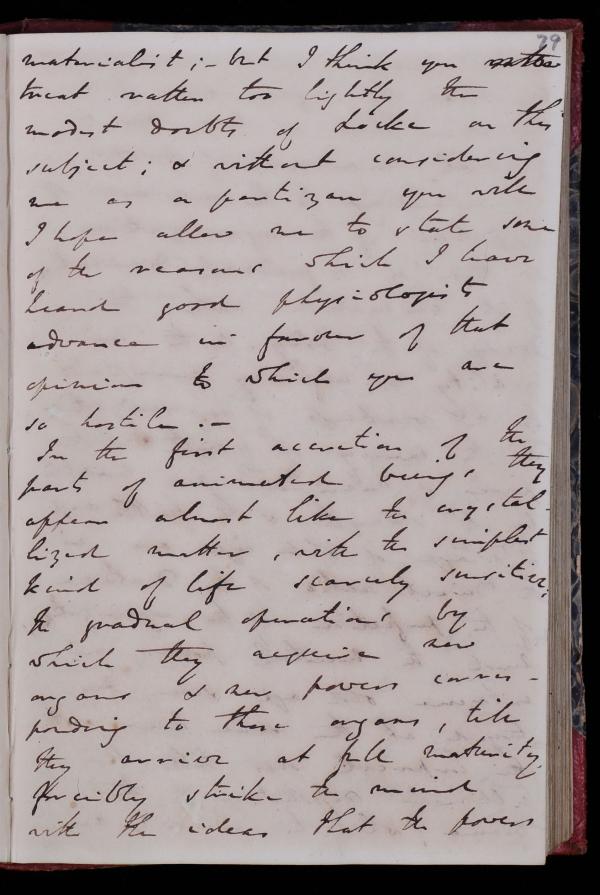 79
materialist; - but I think you
treat rather too lightly the
modest doubts of Locke on this
subject; & without considering
me as a partizan you will
I hope allow me to state some
of the reasons which I have
heard good physiologists
advance in favour of that
opinion to which you are
so hostile. -
In the first accretion of the
parts of animated beings they
appear almost like the crystal-
lized matter, with the simplest
kind of life scarcely sensitive,
the gradual operations by
which they acquire new
organs & new powers corres-
ponding to these organs, till
they arrive at full maturity
forcibly strike the mind
with the idea that the powers